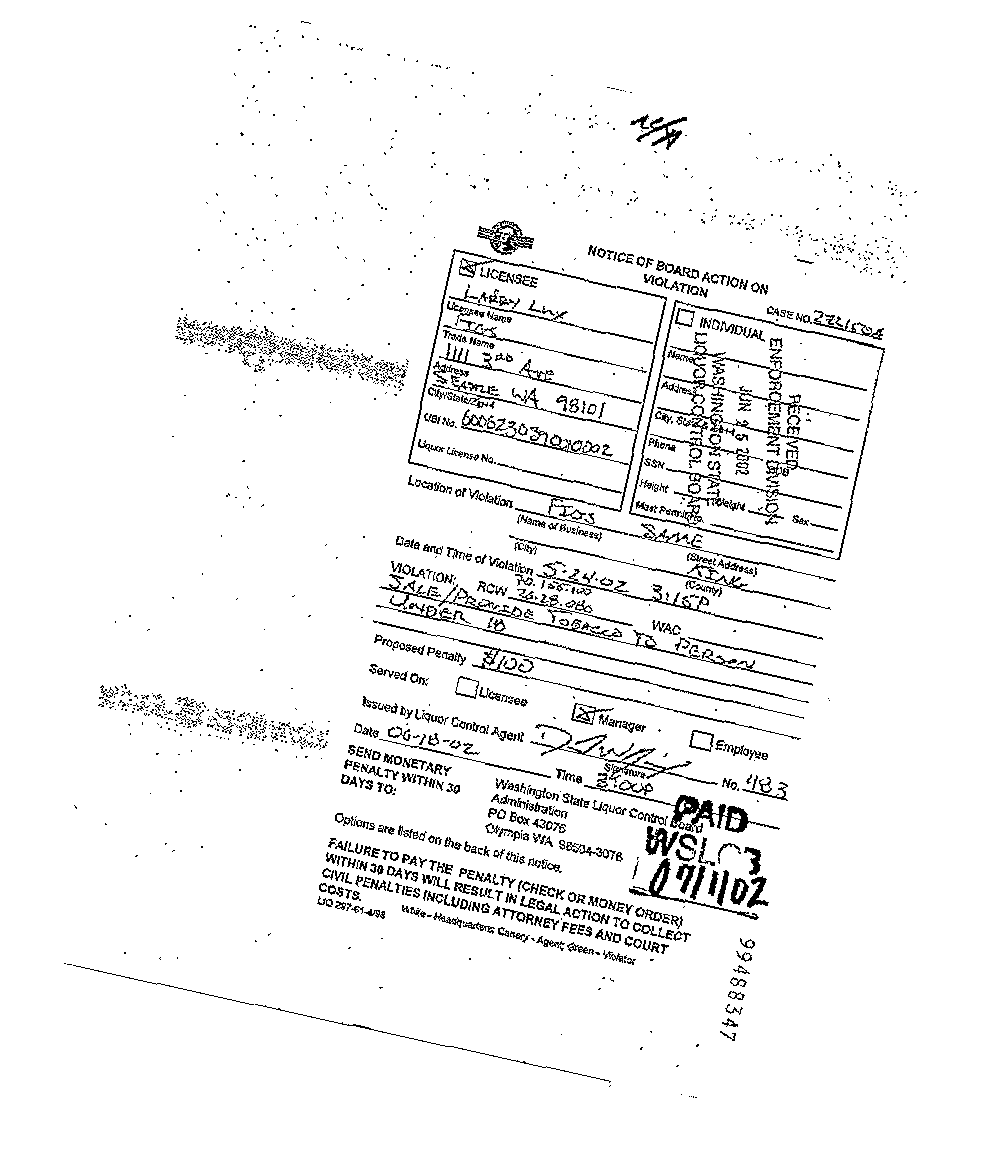 NOTICE OF BOARD ACTION ON
VIOLATION
CASE NO.
LICENSEE
LARRY LUX
Licensee Name
Trade Name
1111 3RD AVE
Address
SEATTLE WA 98101
City/State/Zip+4
UBI No.
Liquor License No.
INDIVIDUAL
Name
Address
City, State
Phone
SSN
Height
Weight
Sex
Mast Permit No.
RECEIVED
ENFORCEMENT DIVISION
JUN 25 2002
WASHINGTON STATE
LIQUOR CONTROL BOARD
Location of Violation
(Name of Business)
SAME
(Street Address)
(City)
KING
(County)
Date and Time of Violation 5-24-02 3:15P
70.155.100
VIOLATION: RCW 26.28.080 WAC
SALE/PROVIDE TOBACCO TO PERSON
UNDER 18
Proposed Penalty $100
Served On: Licensee Manager Employee
Issued by Liquor Control Agent No. 483
Signature
Date 06-18-02 Time 2:00P
SEND MONETARY
PENALTY WITHIN 30
DAYS TO:
Washington State Liquor Control Board
Administration
PO Box 43076
Olympia WA 98504-3076
PAID
07/1/02
Options are listed on the back of this notice.
FAILURE TO PAY THE PENALTY (CHECK OR MONEY ORDER)
WITHIN 30 DAYS WILL RESULT IN LEGAL ACTION TO COLLECT
CIVIL PENALTIES INCLUDING ATTORNEY FEES AND COURT
COSTS.
LIQ 297-61-4/98 White - Headquarters; Canary - Agent; Green - Violator
99488347